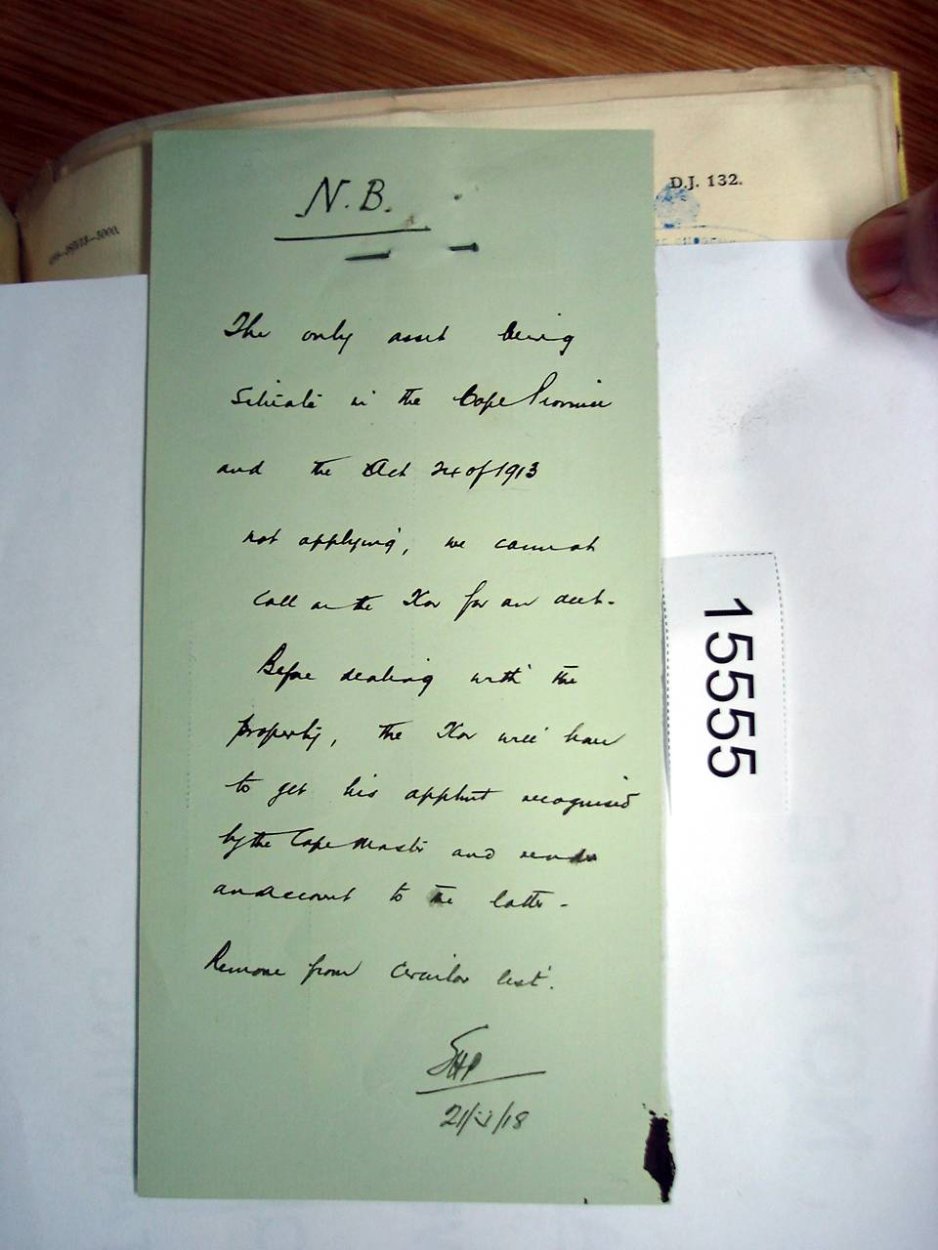 D.J. 132.
N.B.
The only asset being
Situate in the Cape Province
and the Act 24 of 1913
not applying, we cannot
call on the Xor for an acct.
Before dealing with the
property, the Xor will have
to get his apptmt recognised
by the Cape Master and render
an account to the latter -
Remove from Circular list.
15555